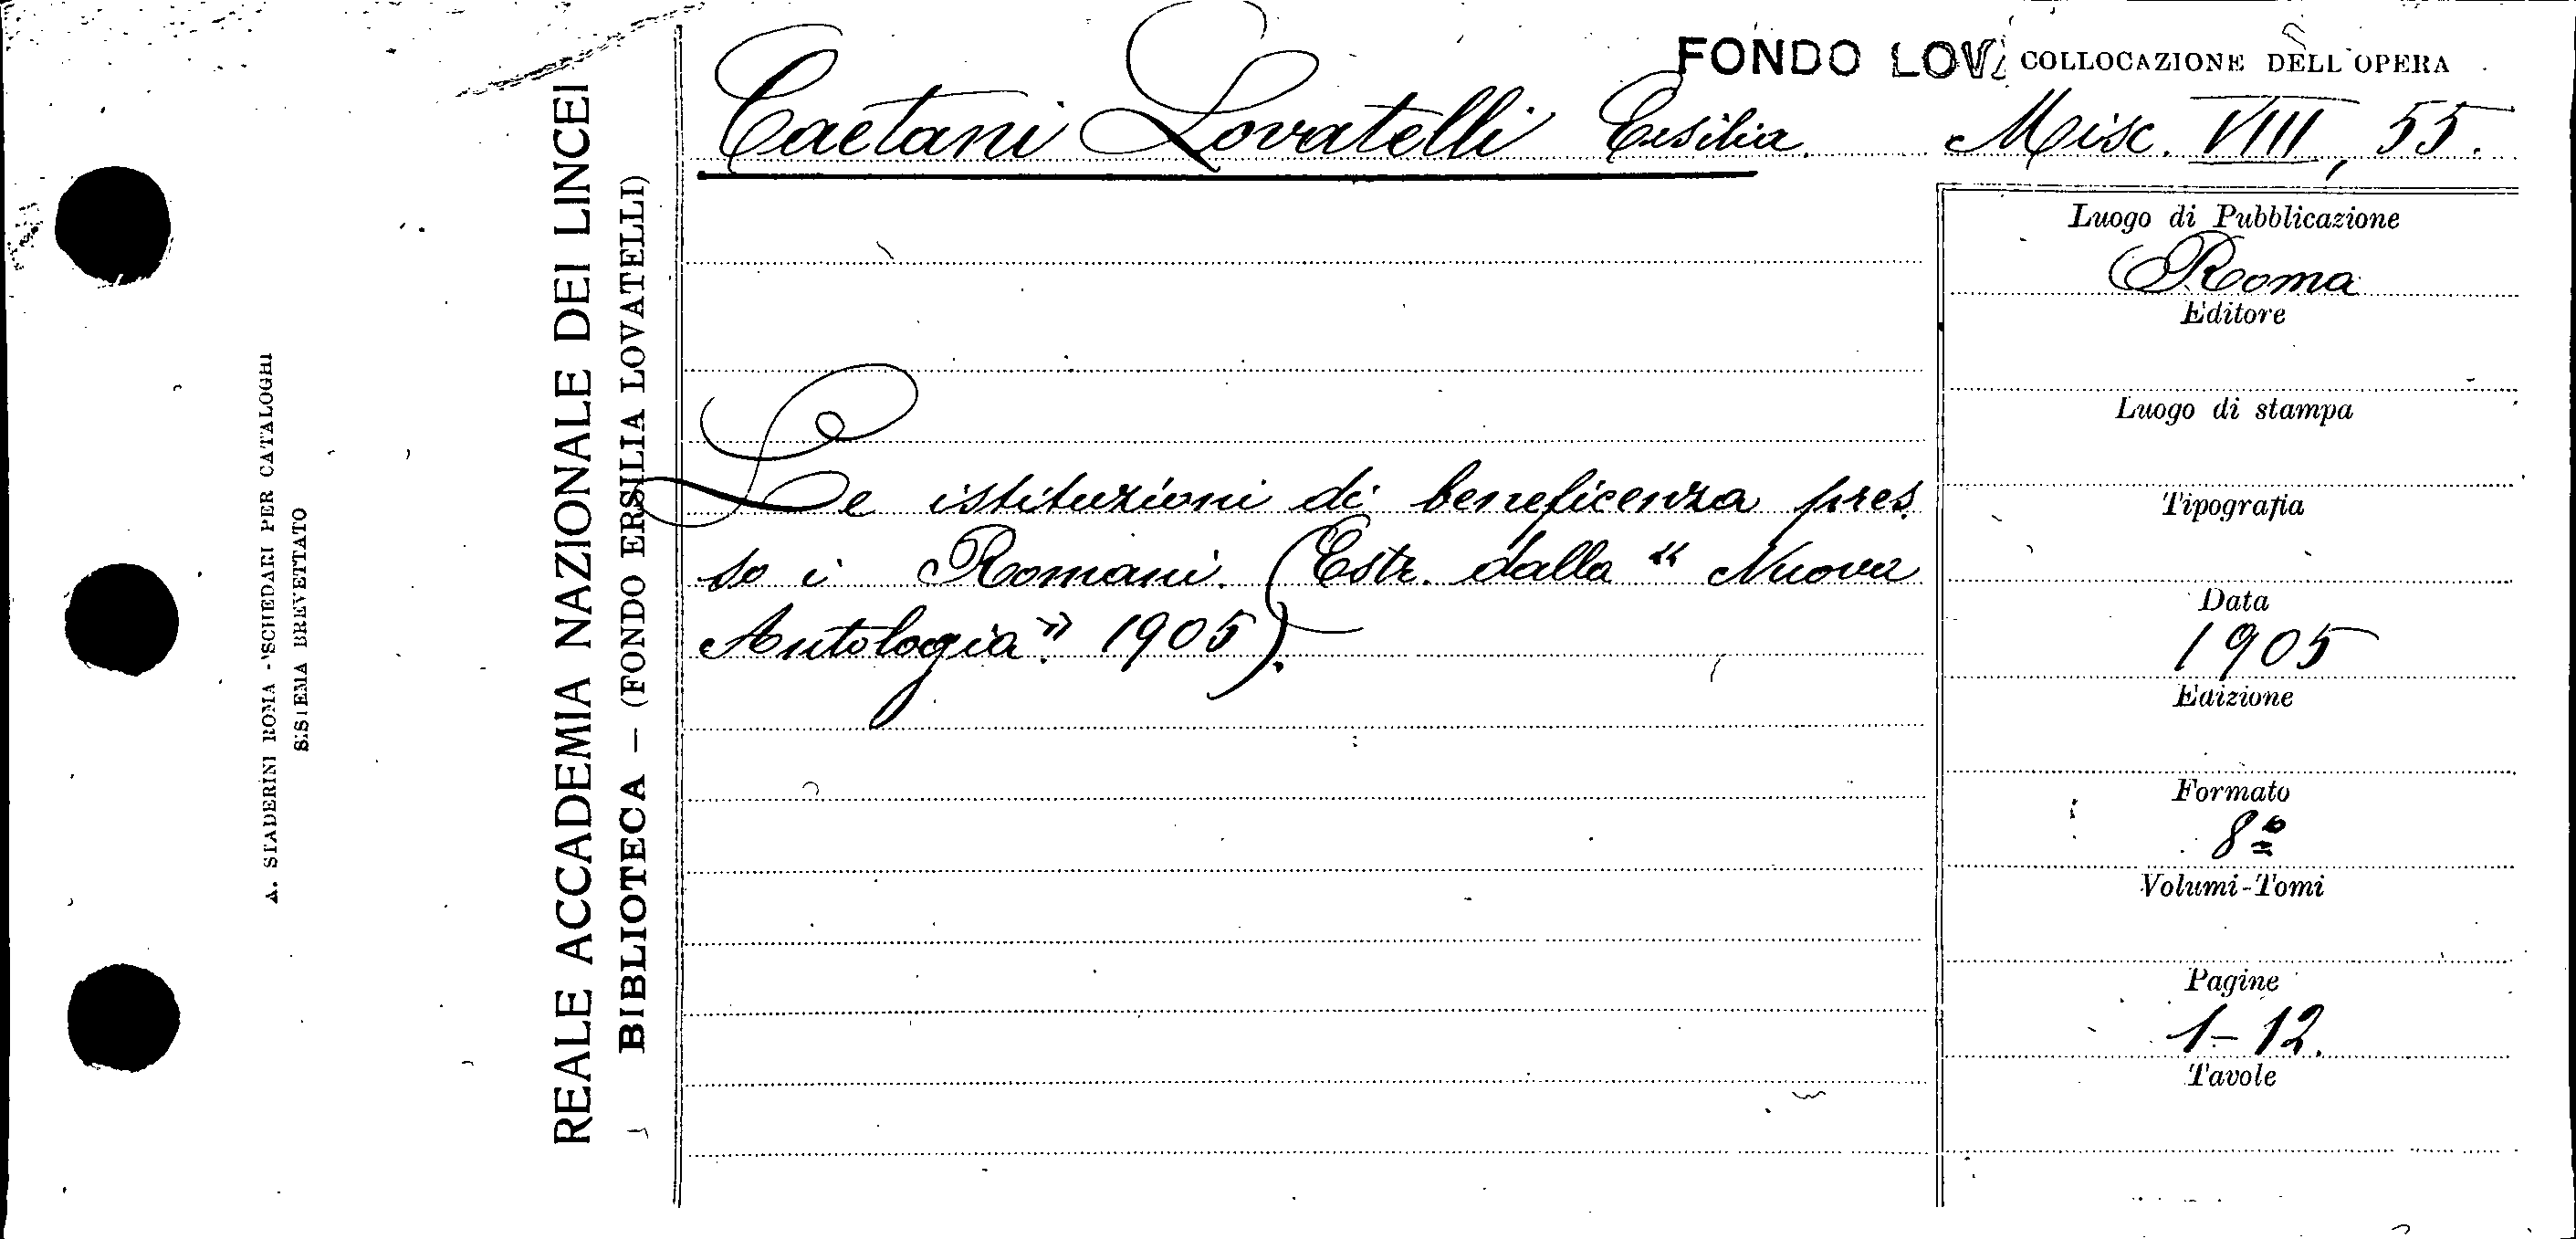 A. STADERINI ROMA - SCHEDARI PER CATALOGHI
SISTEMA BREVETTATO
REALE ACCADEMIA NAZIONALE DEI LINCEI
BIBLIOTECA — (FONDO ERSILIA LOVATELLI)
FONDO LOVA
COLLOCAZIONE DELL'OPERA
Caetani Lovatelli Ersilia.
Misc. VIII, 55.
Le istituzioni di beneficenza pres
so i Romani. (Estr. dalla "Nuova
Antologia". 1905).
Luogo di Pubblicazione
Roma
Editore
Luogo di stampa
Tipografia
Data
1905
Edizione
Formato
8º
Volumi-Tomi
Pagine
1-12.
Tavole